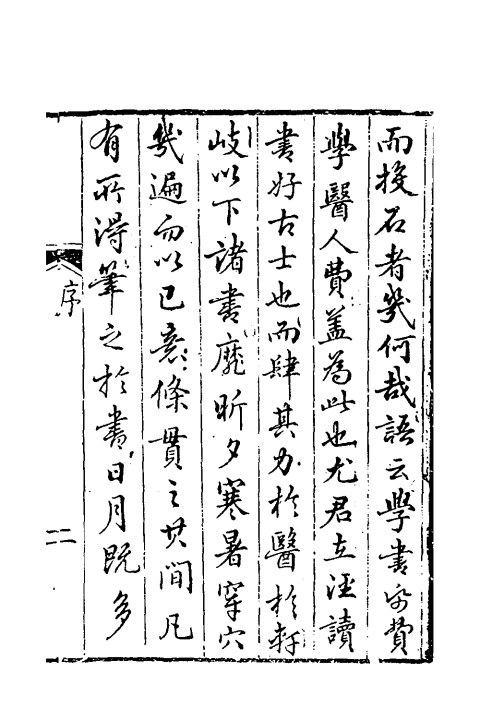 而投石者幾何哉語云學書帋費
學醫人費蓋為此也尤君在涇讀
書好古士也而肆其力於醫於軒
岐以下諸書靡昕夕寒暑穿穴
幾遍而以己意條貫之其間凡
有所得筆之於書日月既多
序
二